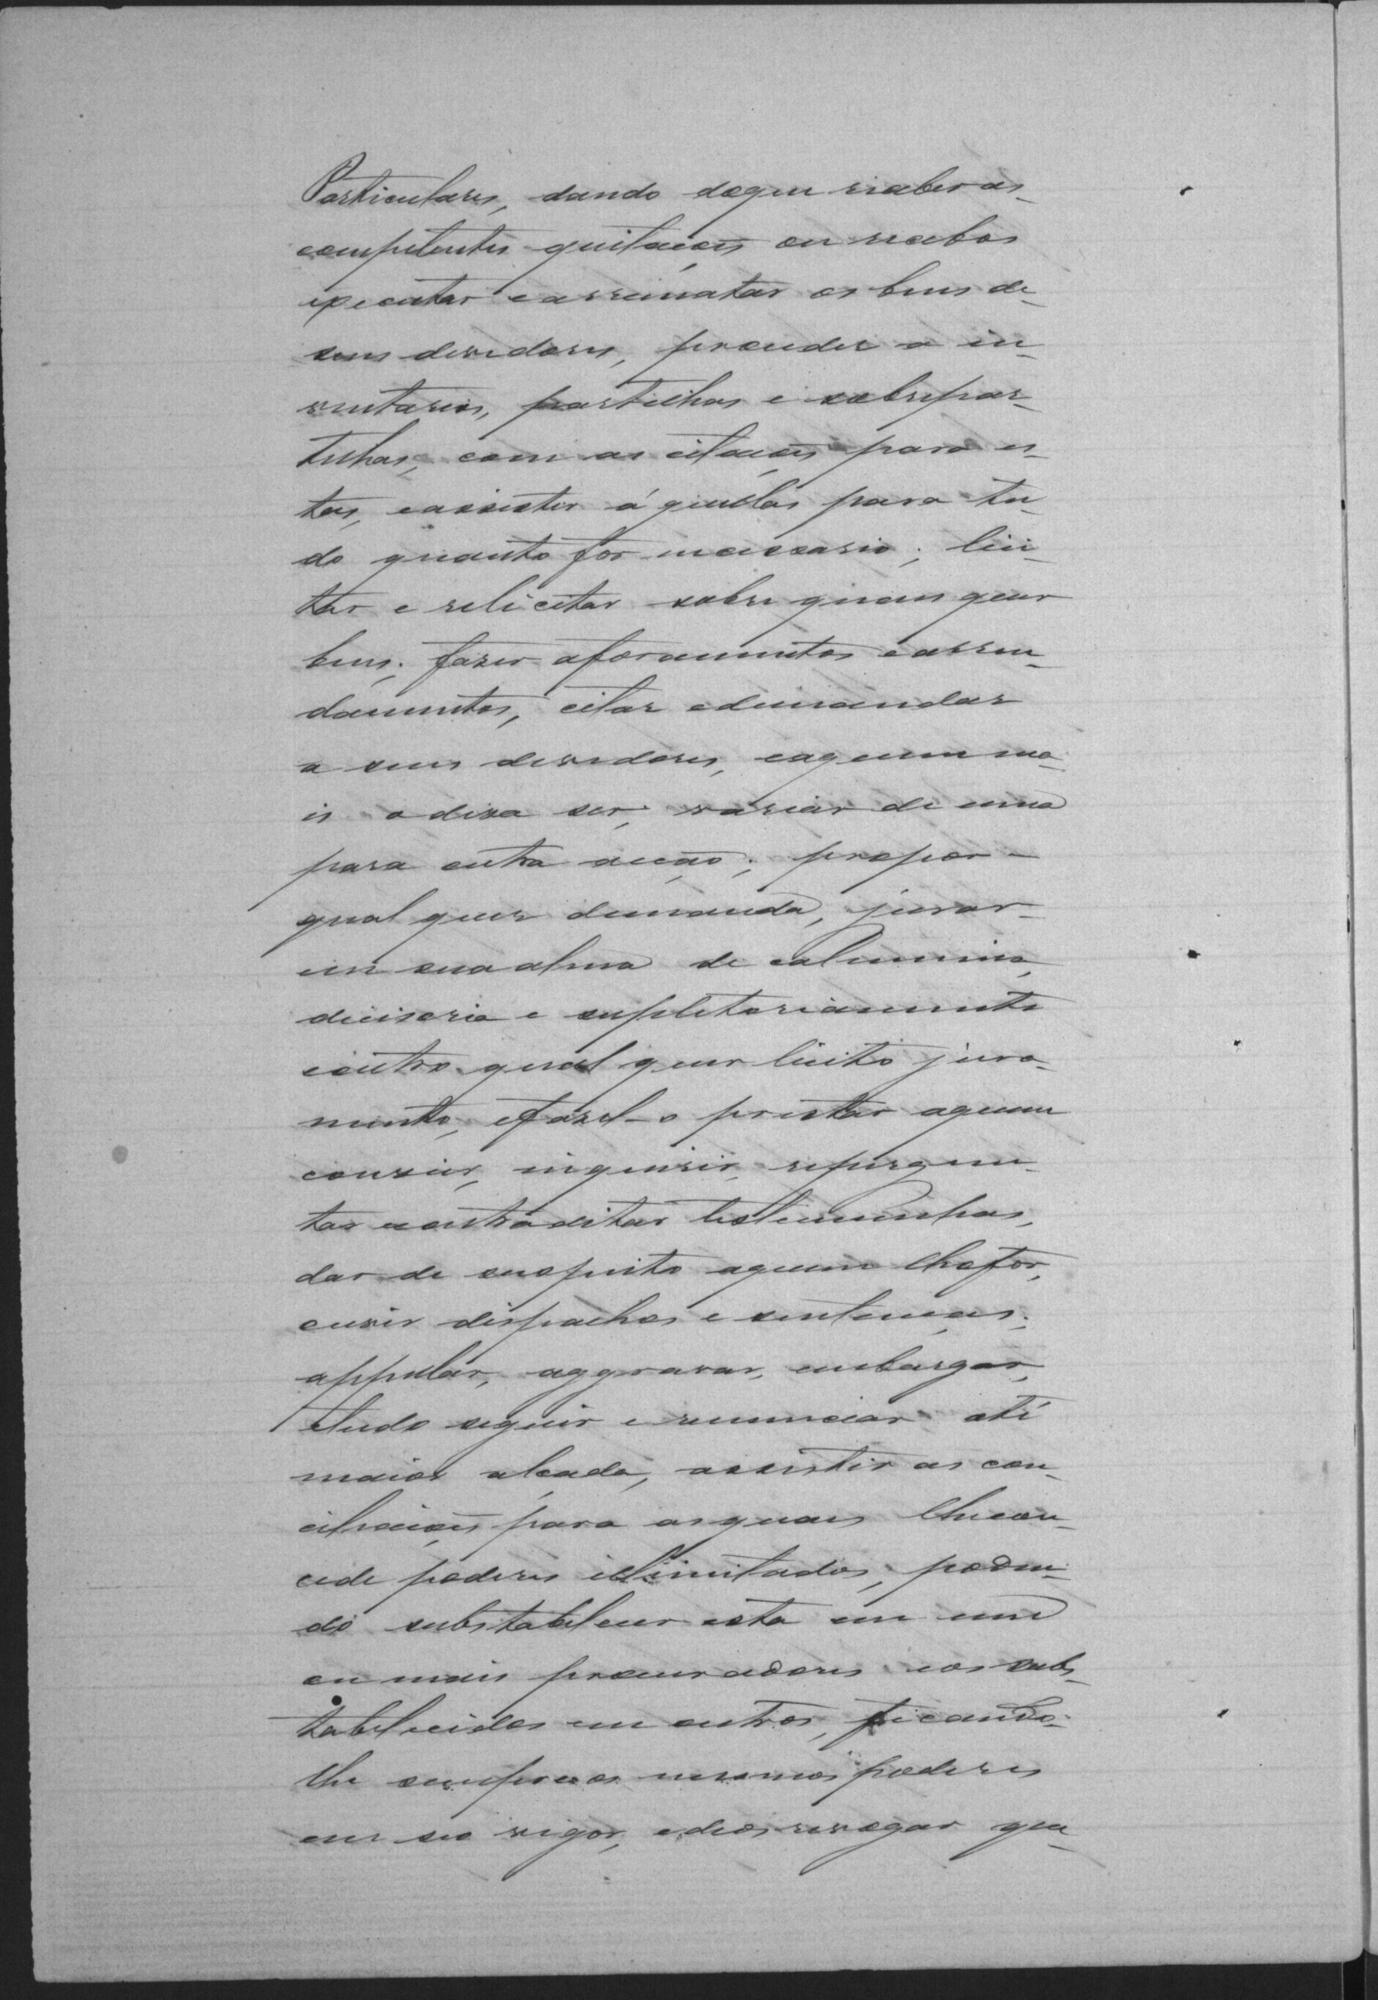 Particulares, dando doque receber as
competentes quitações ou recebos
executar e arrematar os bens de
seus devedores, proceder a in-
ventarios, partilhas e sobrepar-
tilhas, com as citações para es-
tas, e assistir áquellas para tu-
do quanto for necessario; lici-
tar e relicitar sobre quaes quer
bens; fazer aforamentos e arren-
damentos, citar e demandar
a seus devedores, e aquem ma-
is o deva ser; variar de uma
para outra acção; propor
qual quer demanda, jurar
em sua alma de calumnia,
decisoria e supletoriamente
e outro qual quer licito jura-
mento, e fazel-o prestar a quem
convier, inquirir, repergun-
tar e contraditar testemunhas,
dar de suspeito aquem lhe for,
ouvir despachos e sentenças;
appellar, aggravar, embargar,
e tudo seguir e renunciar até
maior alçada, assistir as con-
ciliações para as quaes lhe con-
cede poderes illimitados, poden-
do substabelecer esta em um
ou mais procuradores e os subs-
tabelecidos em outros, ficando-
lhe sempre os mesmos poderes
em seo vigor, e deos revogar que-